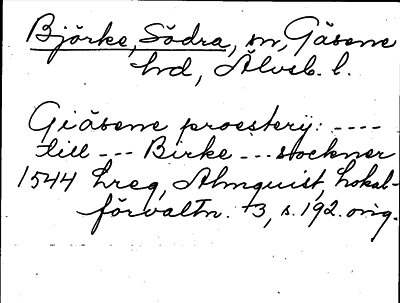 Björke, Södra, sn, Gäsene
hd, Älvsb. l.
Giäsene proestery: ----
till --- Birke --- stockner
1544 hreg, Almquist, Lokal-
förvaltn. +3, s. 192. orig.